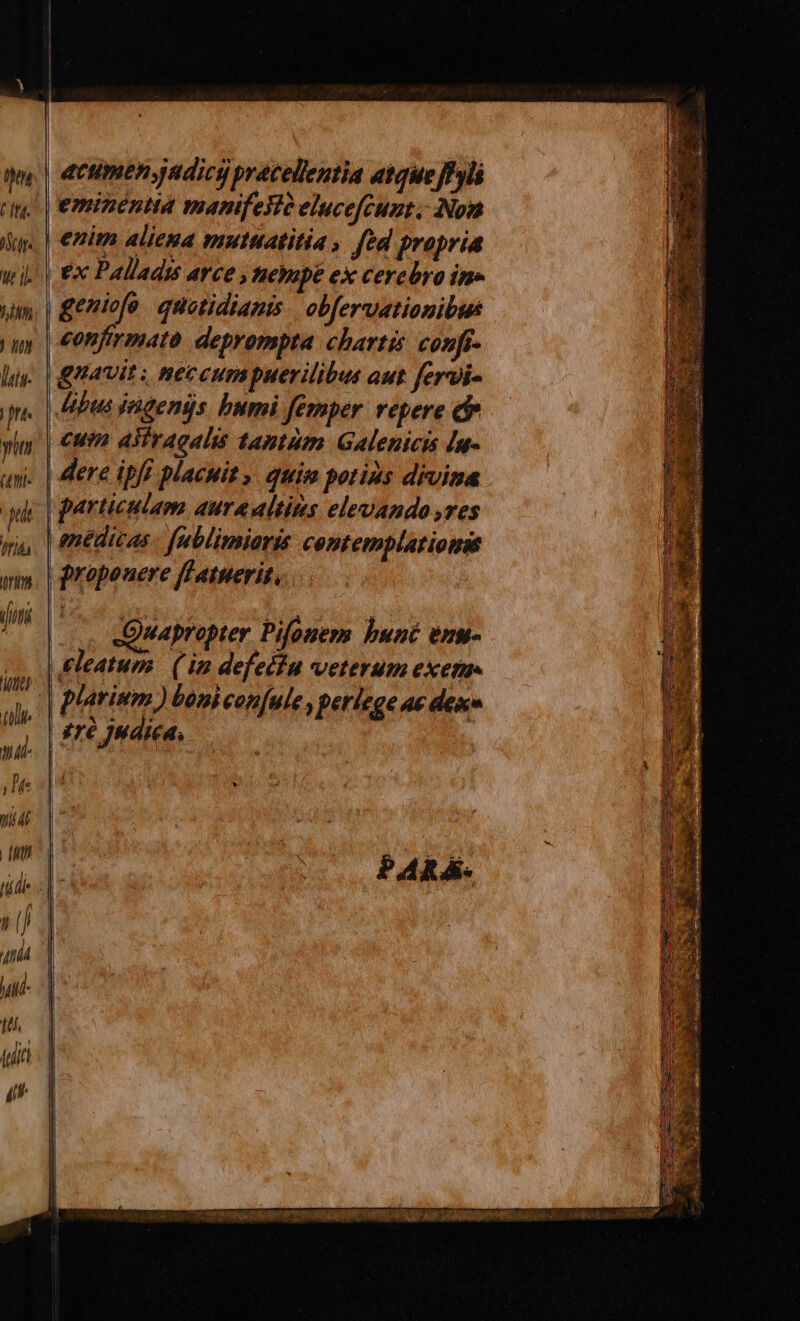 acumen, judicij præcellentia atque ſtyli
eminentia manifeſtè eluceſcunt. Non
enim aliena mutuatitia, ſed propria
ex Palladis arce, nempe ex cerebro in-
genioſo quotidianis obſervationibus
confirmato deprompta chartis conſi-
gnavit; nec cum puerilibus aut ſervi-
libus ingenijs humi ſemper repere &
cum aſtragalis tantùm Galenicis lu-
dere ipſi placuit, quin potiùs divinæ
particulam auræ altiùs elevando, res
medicas ſublimioris contemplationis
proponere ſtatuerit.
Quapropter Piſonem hunc enu-
cleatum (in defectu veterum exem-
plarium) boni conſule, perlege ac dex-
trè judica.
PARÆ-